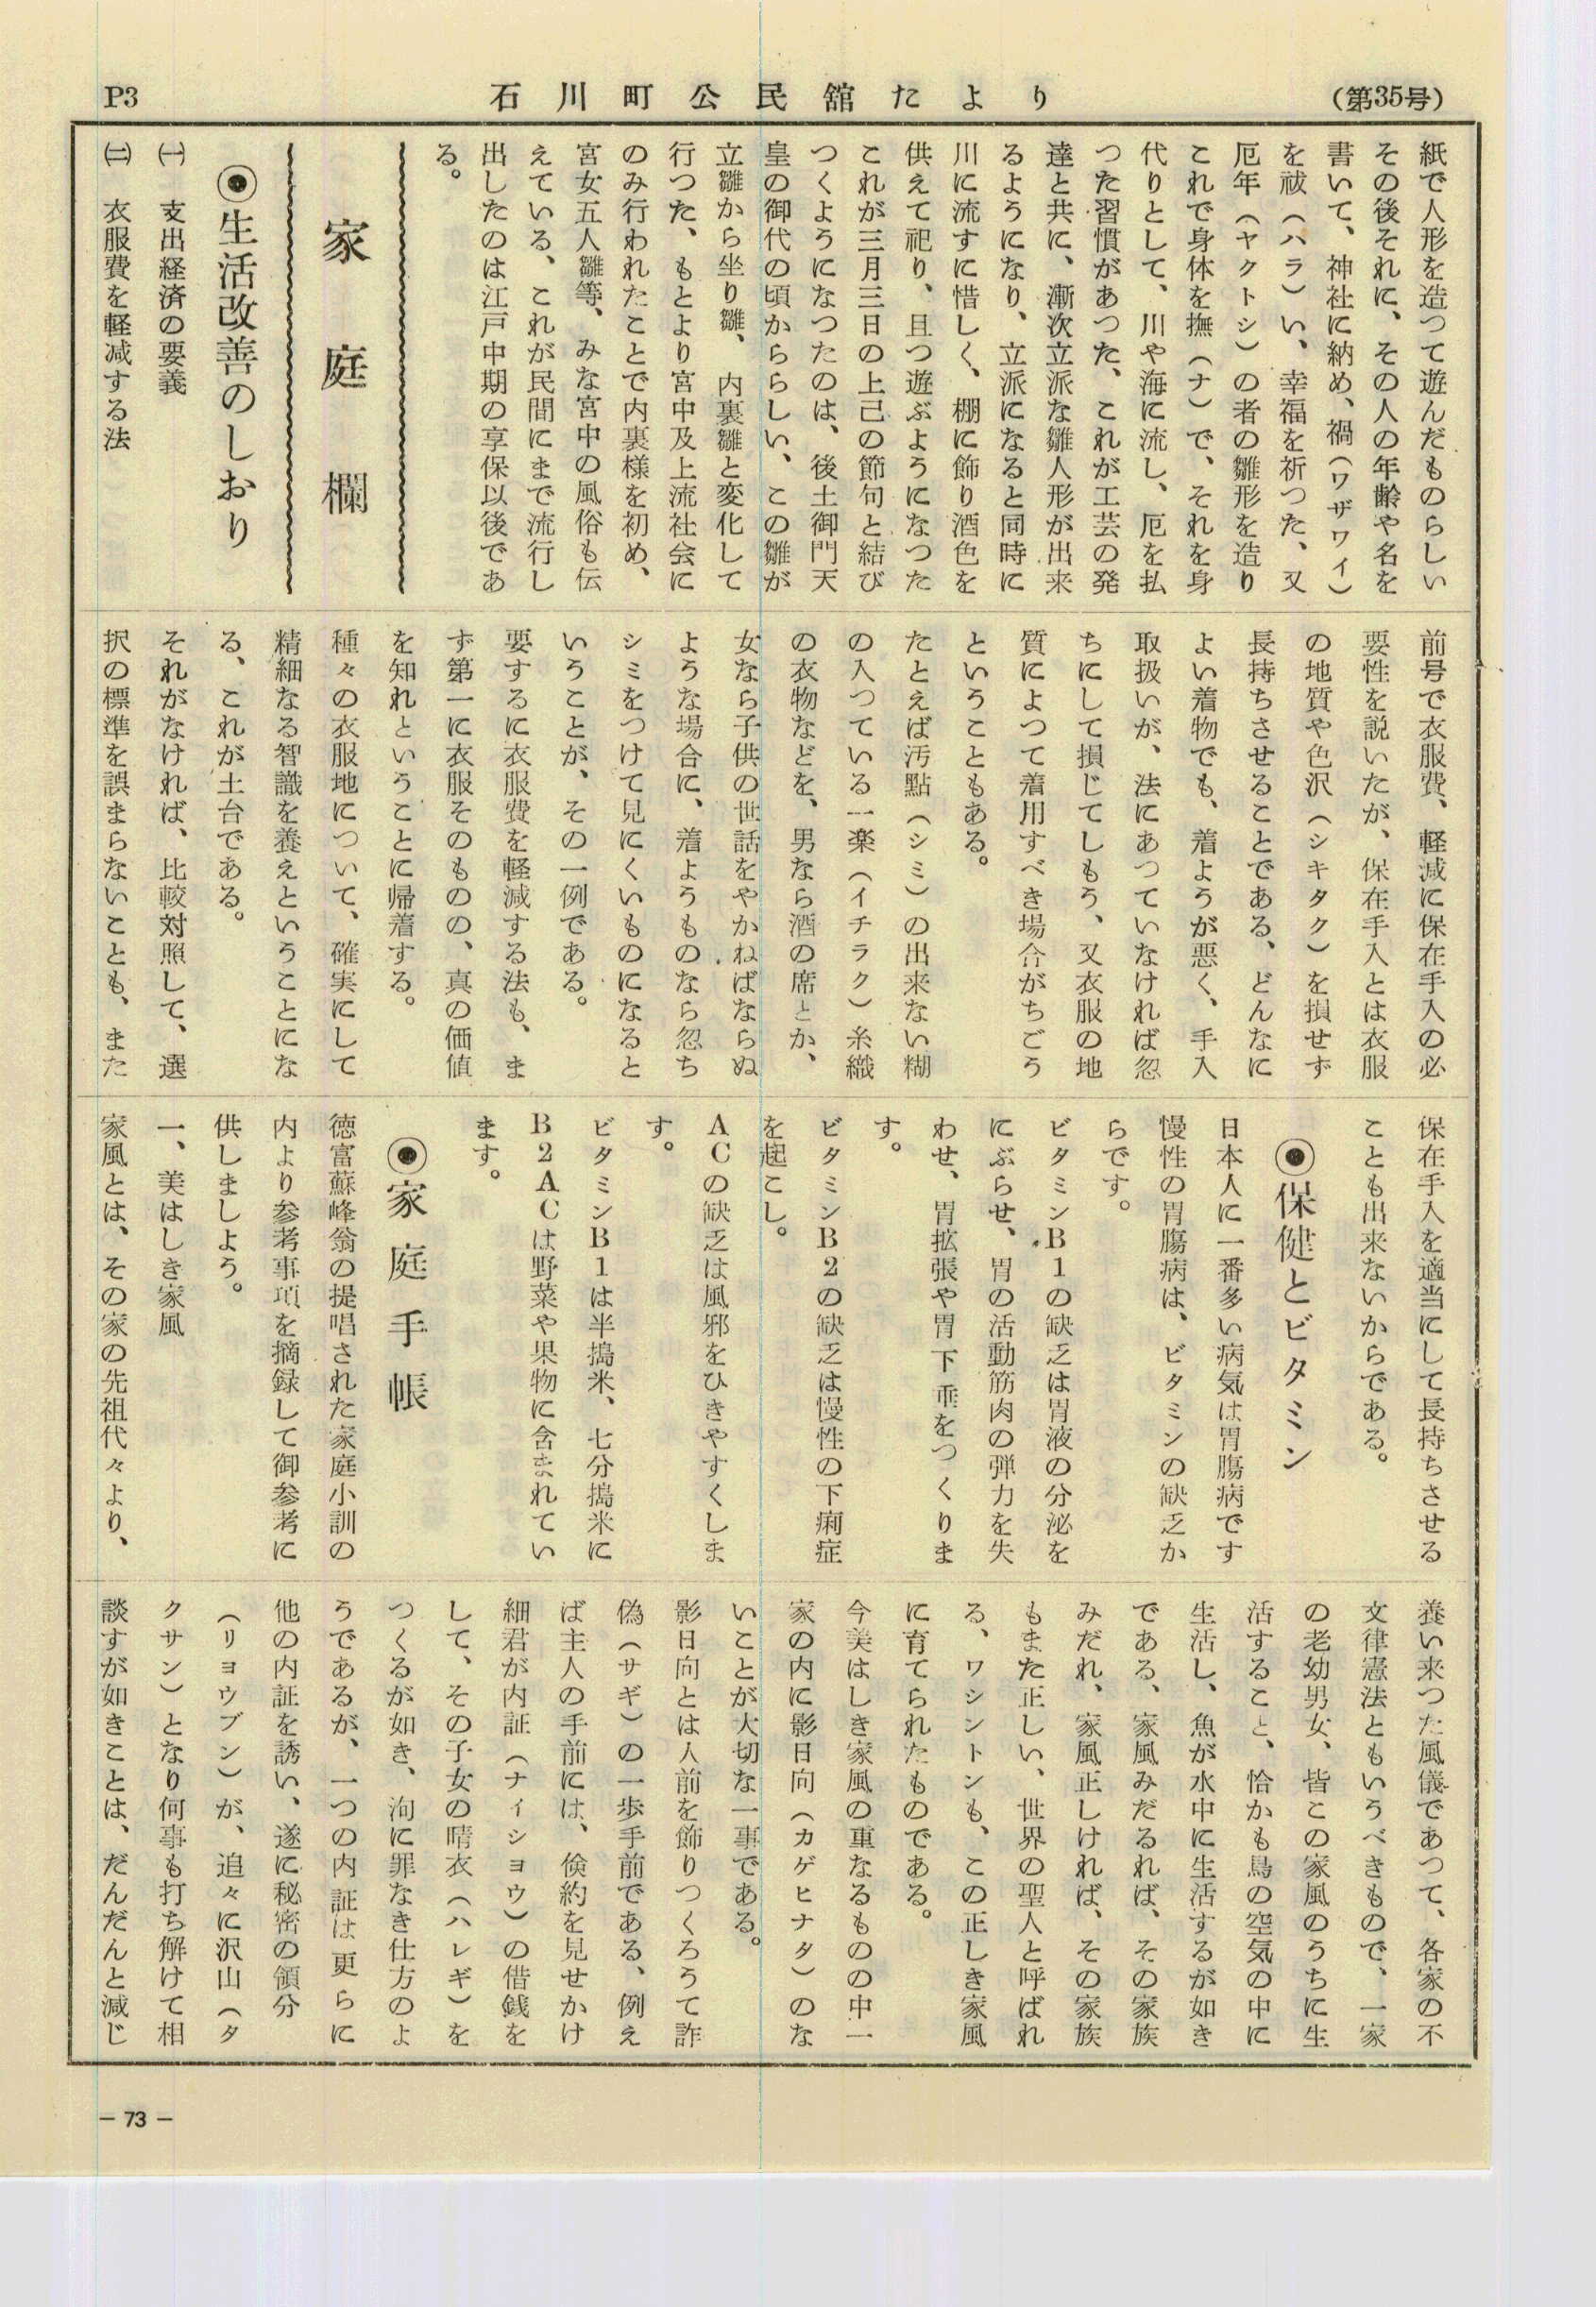 P3
石川町公民舘たより
(第35号)
紙で人形を造つて遊んだものらしい
その後それに、その人の年齢や名を
書いて、神社に納め、禍(ワザワイ)
を祓(ハラ)い、幸福を祈つた、又
厄年(ヤクトシ)の者の雛形を造り
これで身体を撫(ナ)で、それを身
代りとして、川や海に流し、厄を払
つた習慣があつた、これが工芸の発
達と共に、漸次立派な雛人形が出来
るようになり、立派になると同時に
川に流すに惜しく、棚に飾り酒色を
供えて祀り、且つ遊ぶようになつた
これが三月三日の上己の節句と結び
つくようになつたのは、後土御門天
皇の御代の頃かららしい、この雛が
立雛から坐り雛、内裏雛と変化して
行つた、もとより宮中及上流社会に
のみ行われたことで内裏様を初め、
宮女五人雛等、みな宮中の風俗も伝
えている、これが民間にまで流行し
出したのは江戸中期の享保以後であ
る。
家庭欄
◉生活改善のしおり
㈠ 支出経済の要義
㈡ 衣服費を軽減する法
前号で衣服費、軽減に保在手入の必
要性を説いたが、保在手入とは衣服
の地質や色沢(シキタク)を損せず
長持ちさせることである、どんなに
よい着物でも、着ようが悪く、手入
取扱いが、法にあつていなければ忽
ちにして損じてしもう、又衣服の地
質によつて着用すべき場合がちごう
ということもある。
たとえば汚點(シミ)の出来ない糊
の入つている一楽(イチラク)糸織
の衣物などを、男なら酒の席とか、
女なら子供の世話をやかねばならぬ
ような場合に、着ようものなら忽ち
シミをつけて見にくいものになると
いうことが、その一例である。
要するに衣服費を軽減する法も、ま
ず第一に衣服そのものの、真の価値
を知れということに帰着する。
種々の衣服地について、確実にして
精細なる智識を養えということにな
る、これが土台である。
それがなければ、比較対照して、選
択の標準を誤まらないことも、また
保在手入を適当にして長持ちさせる
ことも出来ないからである。
◉保健とビタミン
日本人に一番多い病気は胃腸病です
慢性の胃腸病は、ビタミンの缺乏か
らです。
ビタミンB1の缺乏は胃液の分泌を
にぶらせ、胃の活動筋肉の弾力を失
わせ、胃拡張や胃下垂をつくりま
す。
ビタミンB2の缺乏は慢性の下痢症
を起こし。
ACの缺乏は風邪をひきやすくしま
す。
ビタミンB1は半搗米、七分搗米に
B2ACは野菜や果物に含まれてい
ます。
◉家庭手帳
徳富蘇峰翁の提唱された家庭小訓の
内より参考事項を摘録して御参考に
供しましよう。
一、美はしき家風
家風とは、その家の先祖代々より、
養い来つた風儀であつて、各家の不
文律憲法ともいうべきもので、一家
の老幼男女、皆この家風のうちに生
活すること、恰かも鳥の空気の中に
生活し、魚が水中に生活するが如き
である、家風みだるれば、その家族
みだれ、家風正しければ、その家族
もまた正しい、世界の聖人と呼ばれ
る、ワシントンも、この正しき家風
に育てられたものである。
今美はしき家風の重なるものの中一
家の内に影日向(カゲヒナタ)のな
いことが大切な一事である。
影日向とは人前を飾りつくろうて詐
偽(サギ)の一歩手前である、例え
ば主人の手前には、倹約を見せかけ
細君が内証(ナイショウ)の借銭を
して、その子女の晴衣(ハレギ)を
つくるが如き、洵に罪なき仕方のよ
うであるが、一つの内証は更らに
他の内証を誘い、遂に秘密の領分
(リョウブン)が、追々に沢山(タ
クサン)となり何事も打ち解けて相
談すが如きことは、だんだんと減じ
－73－